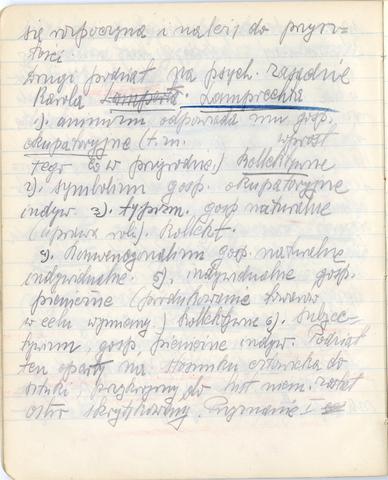 się rozpoczyna i należy do przysz=
łości
Drugi podział na psych. zasadzie
Karola Lamparta. Lamprechta
1). animizm odpowiada mu gosp.
okupatoryjne (t. m. wprost
tego co w przyrodzie.) Kollektywne
2). symbolizm gosp. okupatoryjne
indyw. 3). typizm. gosp naturalne
(uprawa roli). Kollekt.
4). Konwencjonalizm gosp. naturalne
indywidualne. 5). indywidualne gosp.
pieniężne (produkowanie towarów
w celu wymiany.) Kollektywne 6). Subjek-
tywizm, gosp. pieniężne indyw. Podział
ten oparty na stosunku człowieka do
sztuki, do hist niem. został
ostro skrytykowany. I